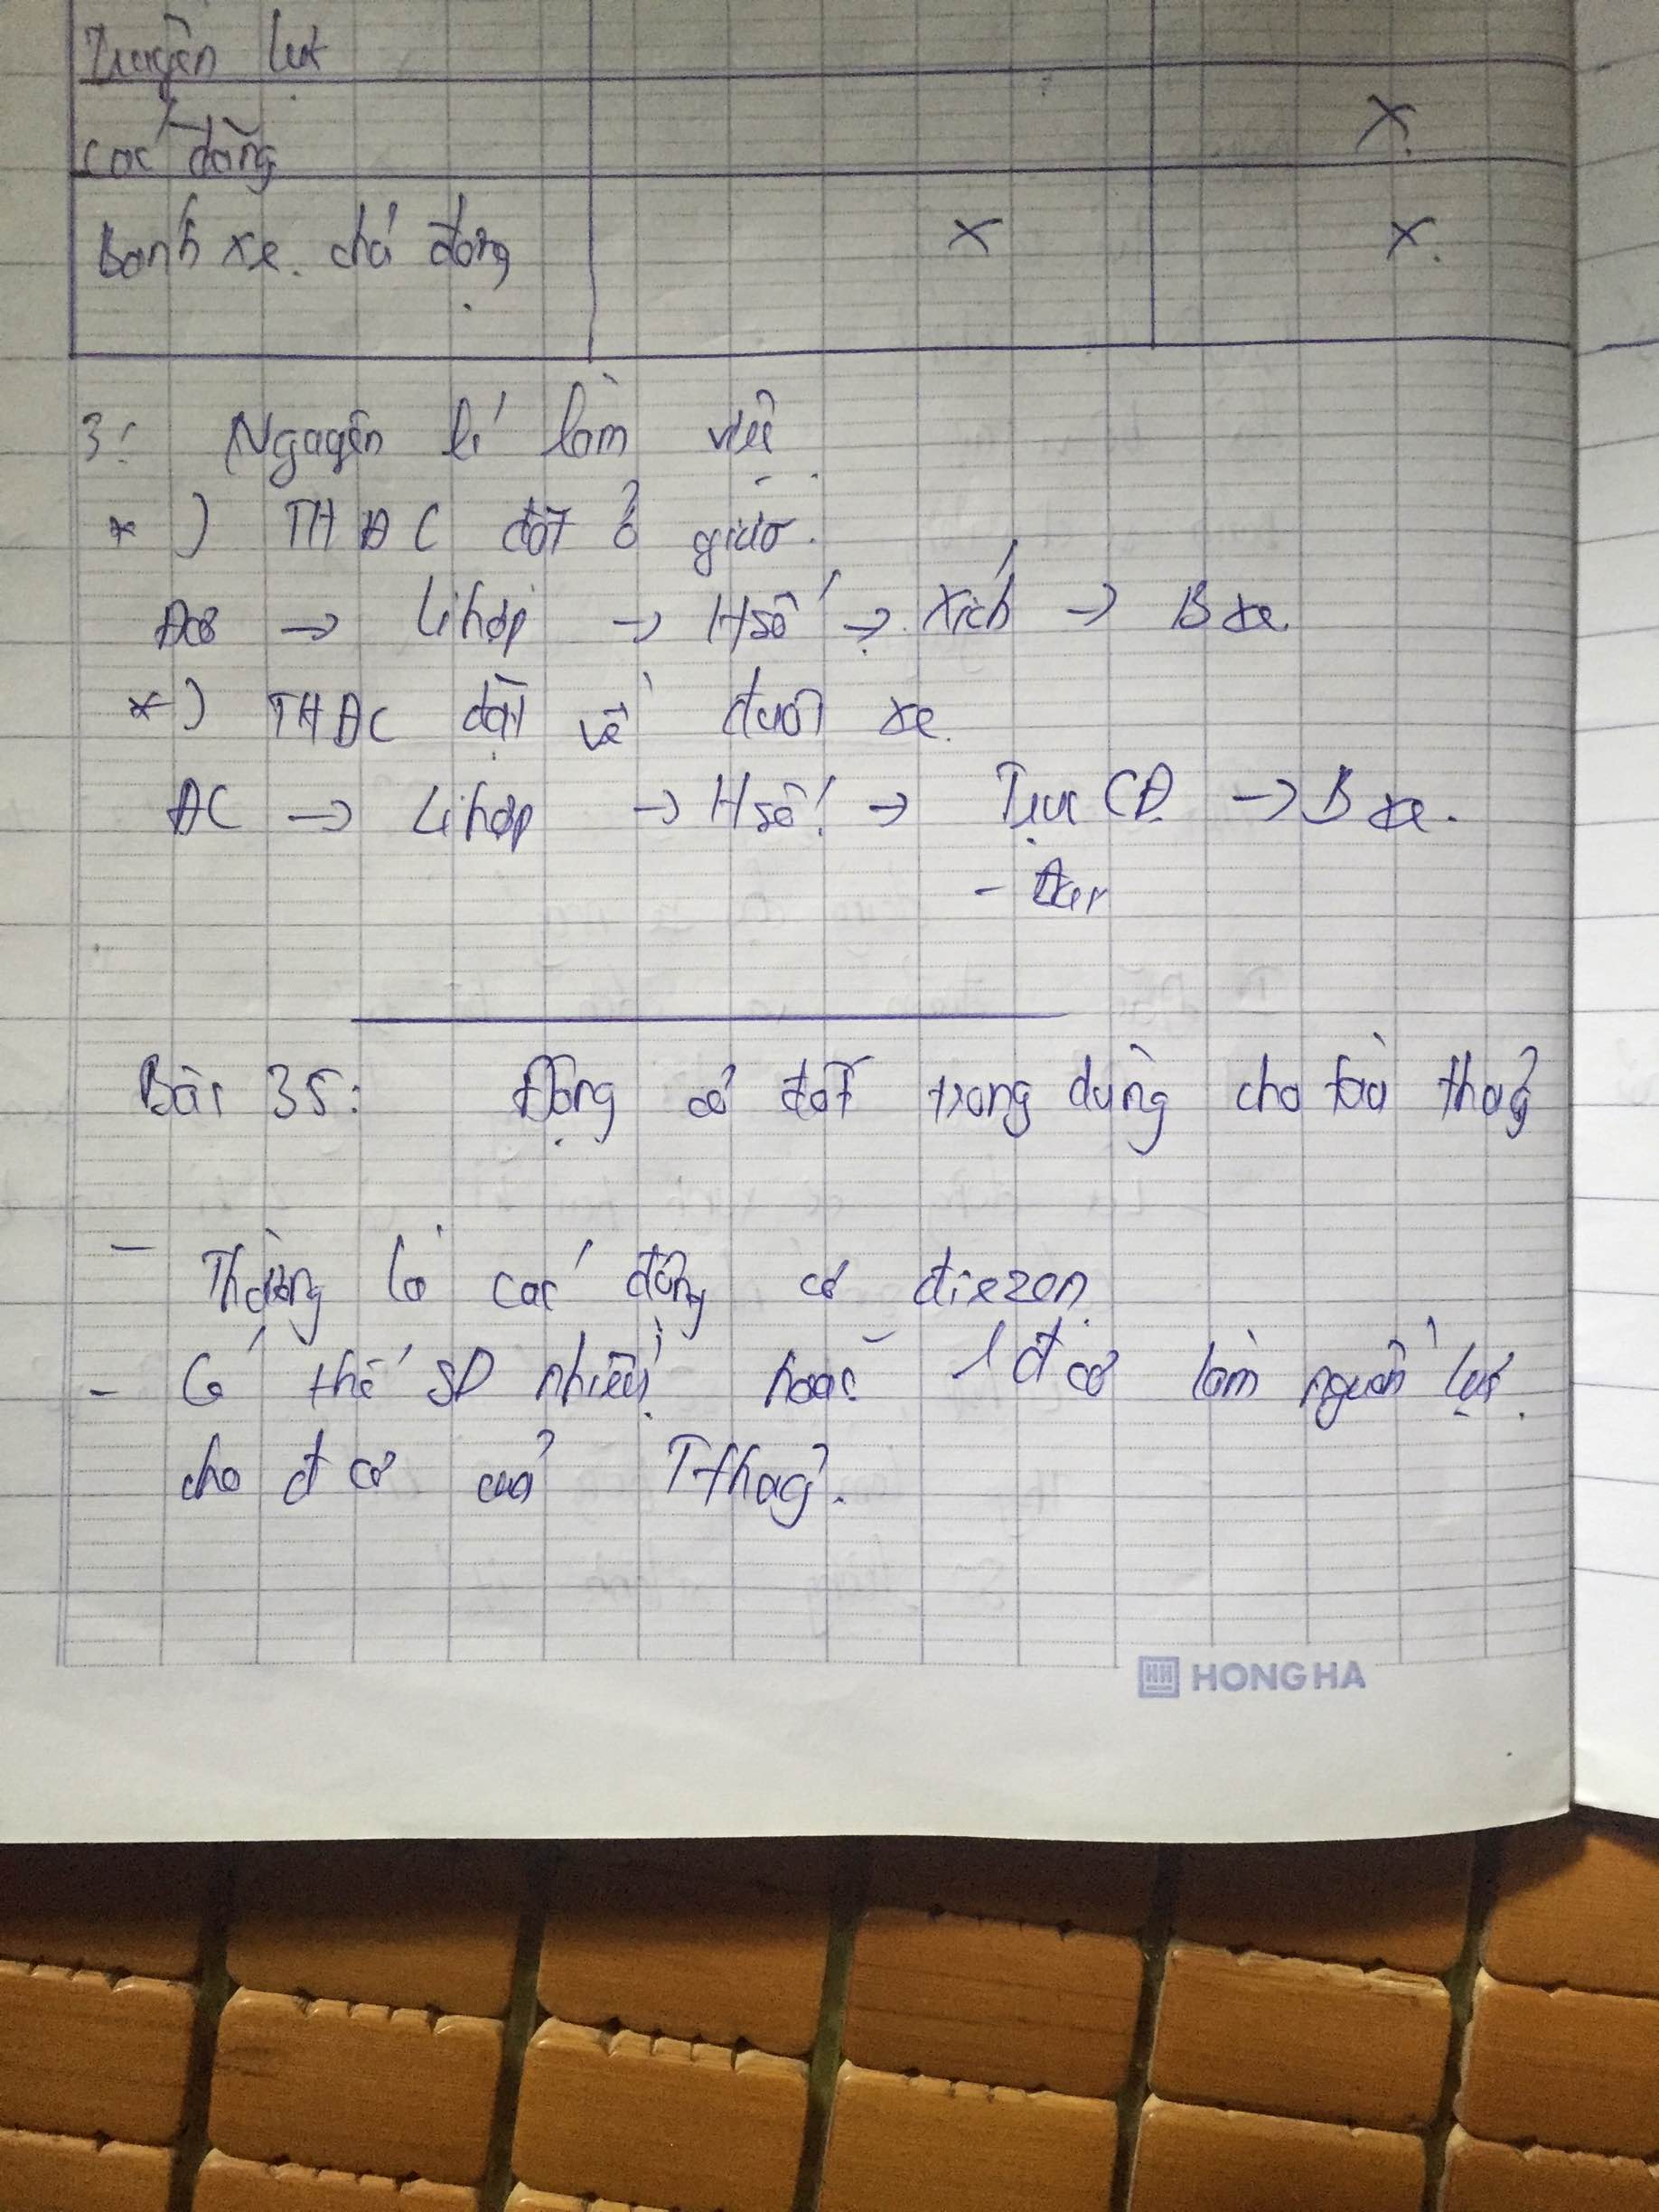 Truyền lực
các đăng X
Bánh xe chủ động X X
3: Nguyên lí làm việc
*) TH ĐC đặt ở giữa.
Đcơ → Li hợp → H số → Xích → B xe
*) TH ĐC đặt về đuôi xe.
ĐC → Li hợp → H số → Trục CĐ → B xe.
Bài 35: Động cơ đốt trong dùng cho tàu thuỷ
- Thường là các động cơ điezen
- Có thể SD nhiều hoặc 1 đ cơ làm nguồn lực
cho đ cơ của T thuỷ.
HONG HA